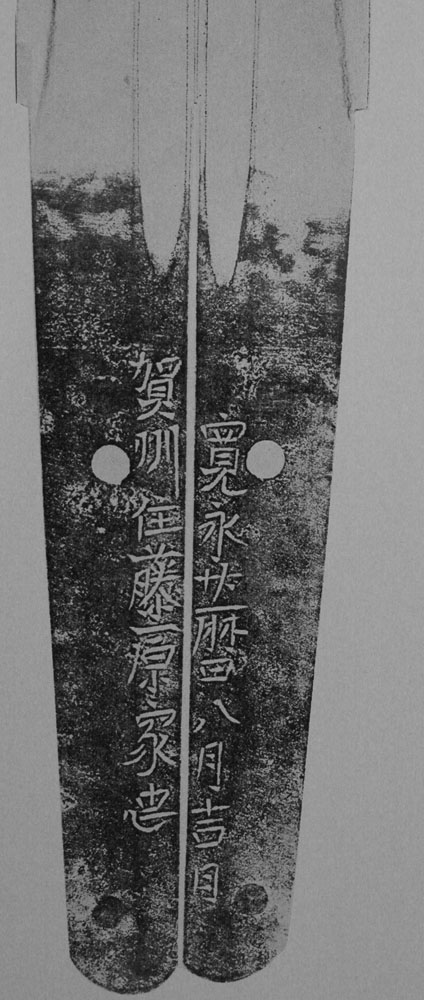 寛永廿暦八月吉日
賀州住藤原家忠